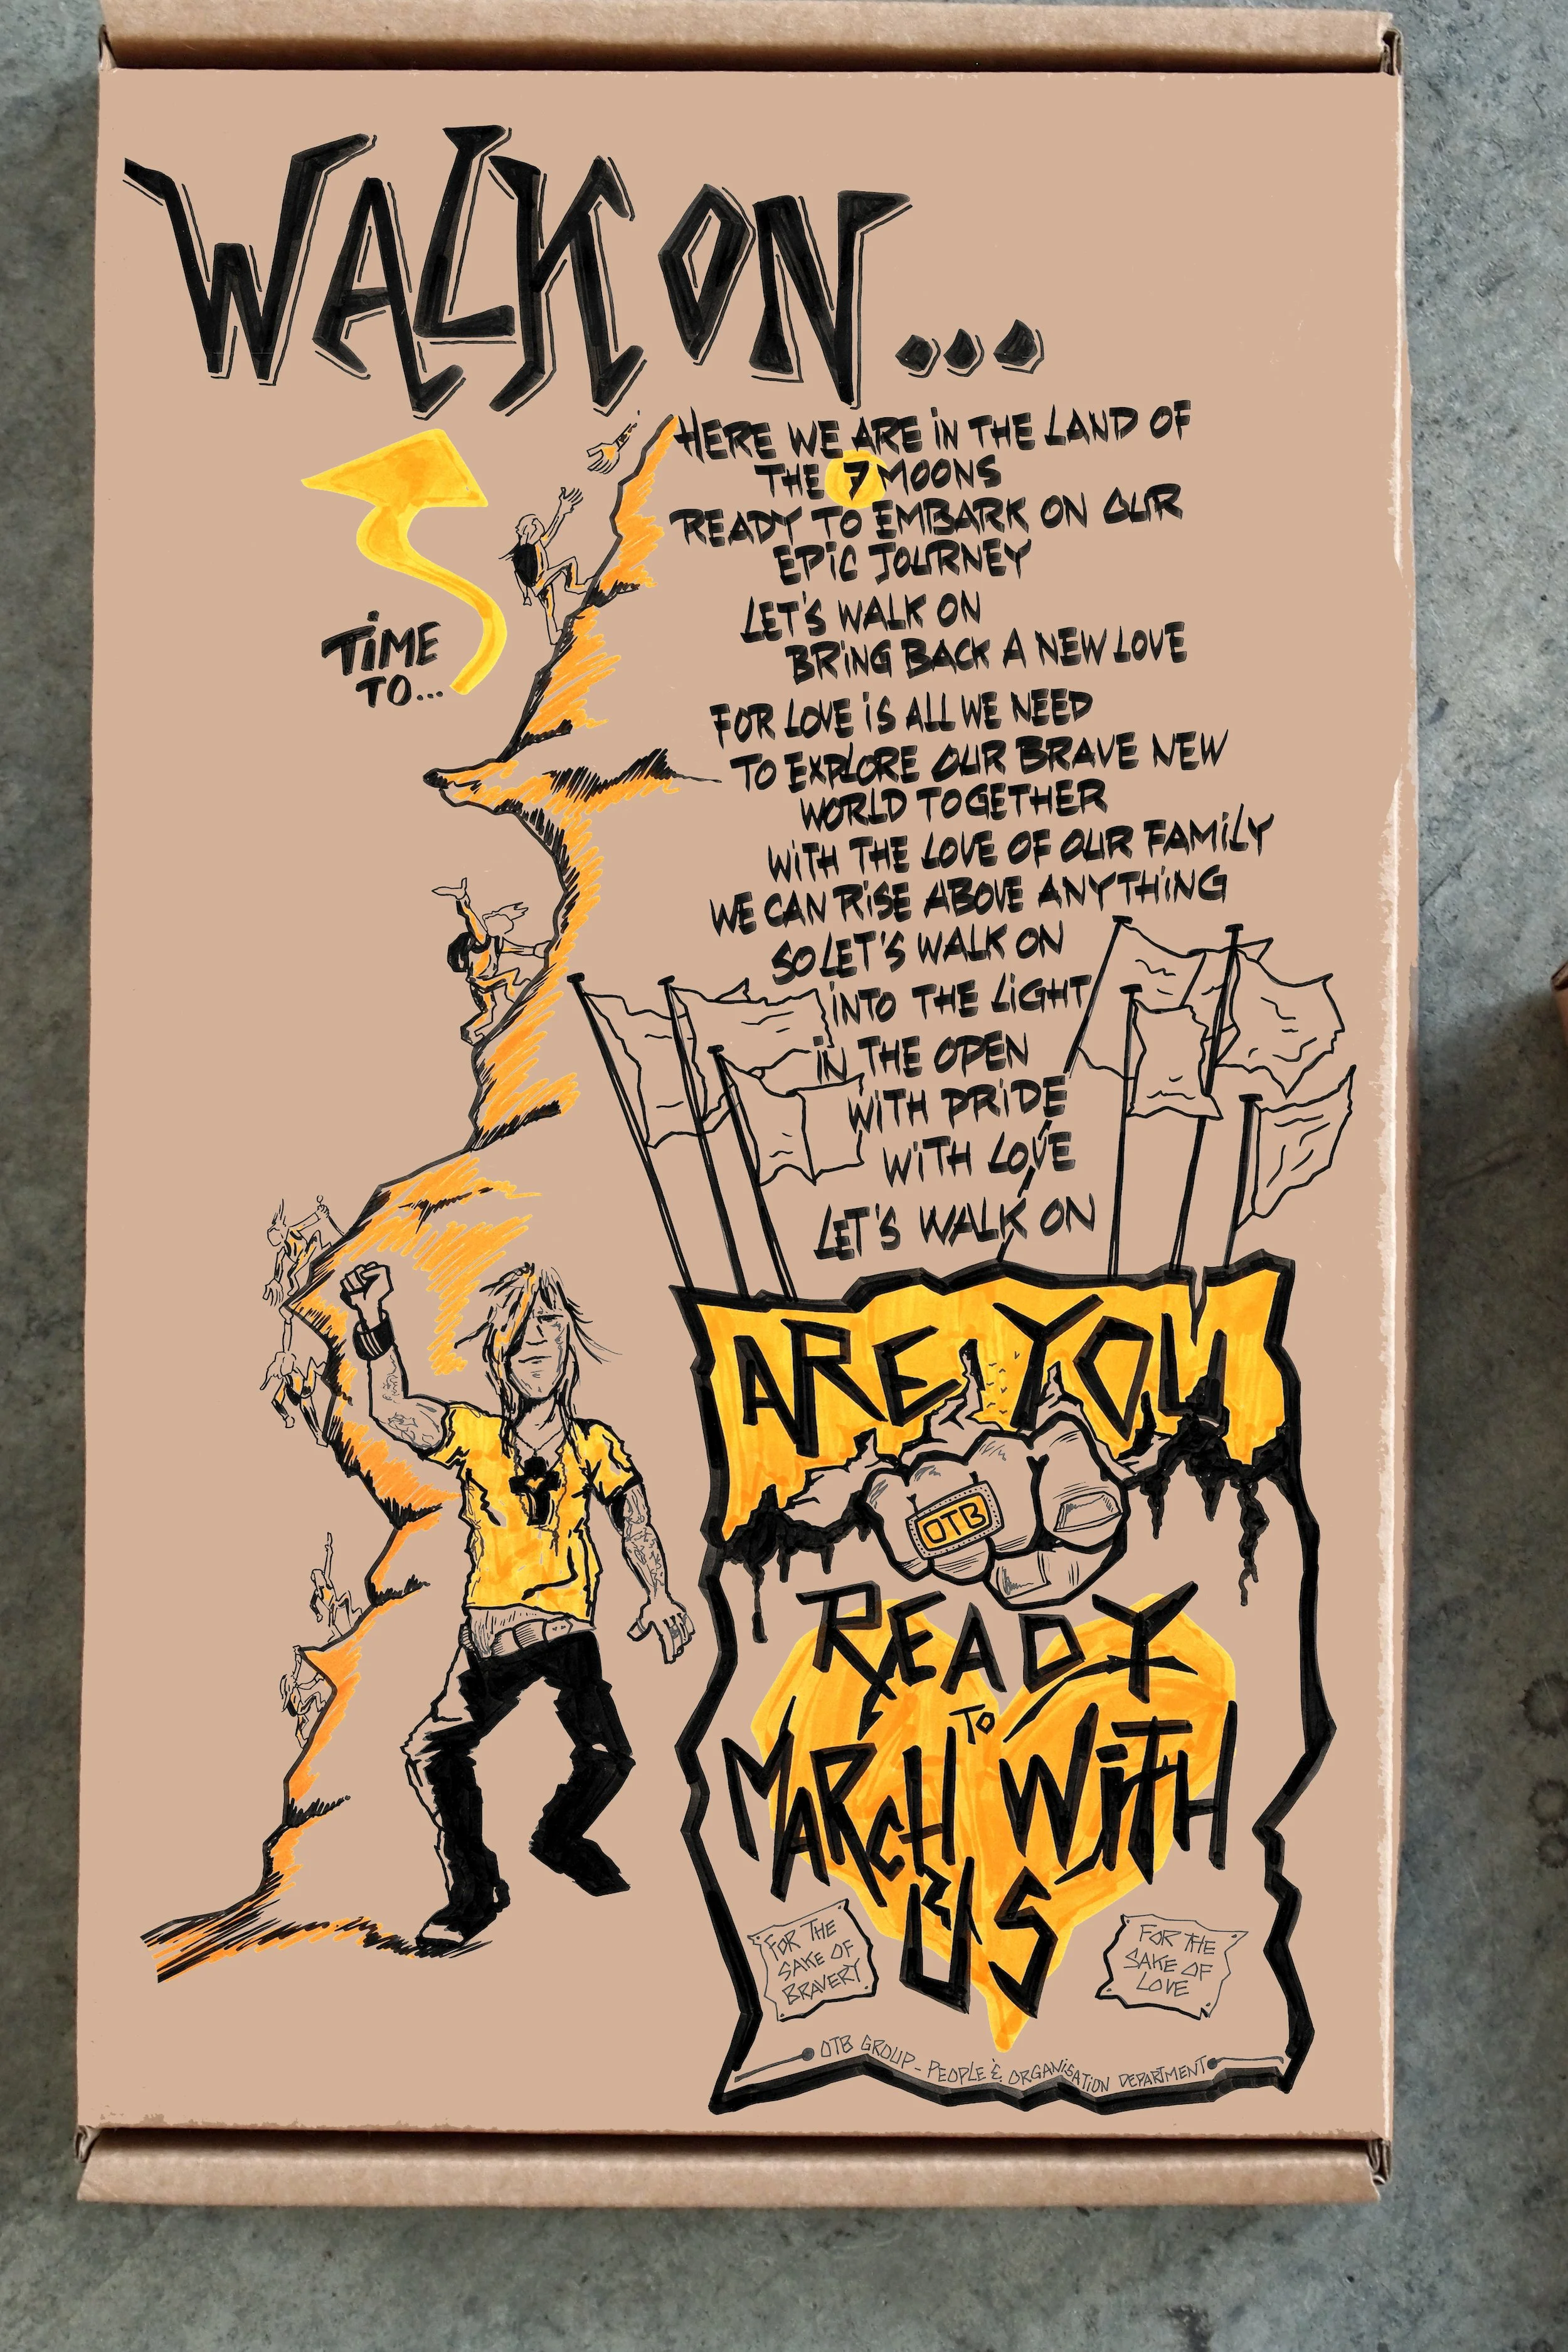 WALK ON...
TiME
TO...
HERE WE ARE iN THE LAND OF
THE 7 MOONS
READY TO EMBARK ON OUR
EPiC JOURNEY
LET'S WALK ON
BRiNG BACK A NEW LOVE
FOR LOVE iS ALL WE NEED
TO EXPLORE OUR BRAVE NEW
WORLD TOGETHER
WiTH THE LOVE OF OUR FAMiLY
WE CAN RiSE ABOVE ANYTHiNG
SO LET'S WALK ON
iNTO THE LiGHT
iN THE OPEN
WiTH PRiDE
WiTH LOVE
LET'S WALK ON
ARE YOU
OTB
READY
TO
MARCH WiTH
US
FOR THE
SAKE OF
BRAVERY
FOR THE
SAKE OF
LOVE
OTB GROUP - PEOPLE & ORGANiSATiON DEPARTMENT